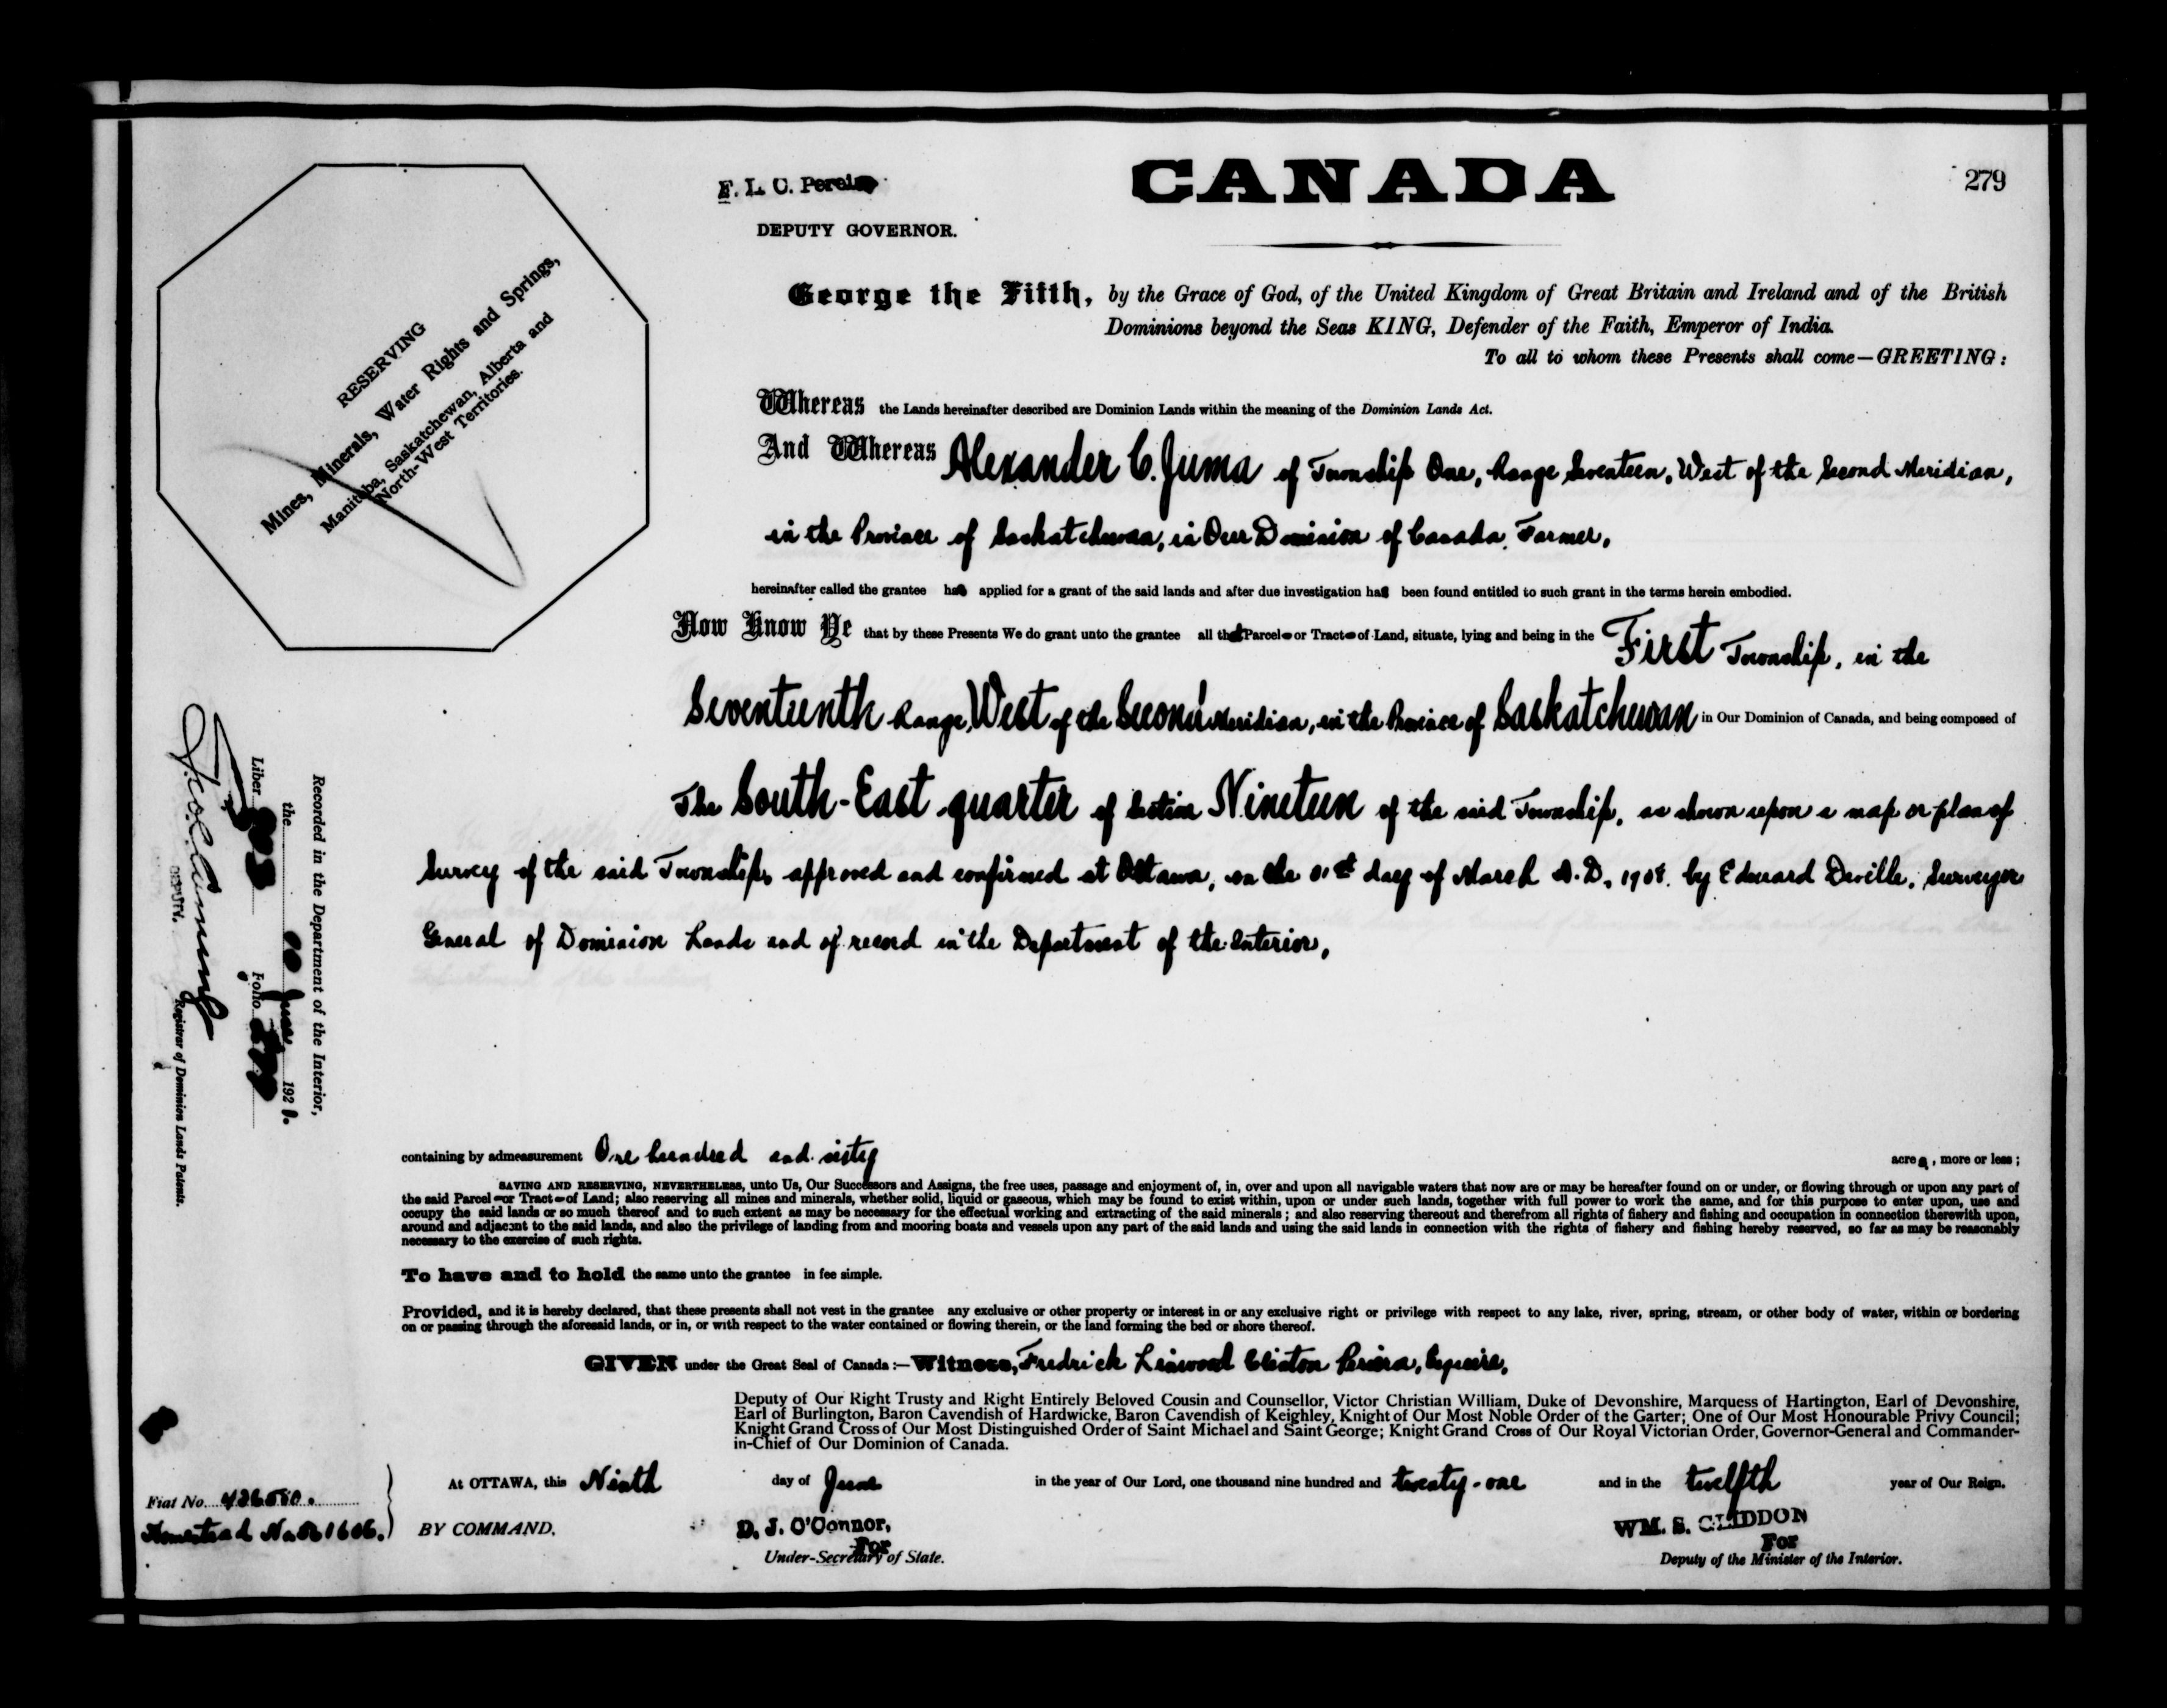 279
F. L. C. Pereira
CANADA
DEPUTY GOVERNOR.
George the Fifth, by the Grace of God, of the United Kingdom of Great Britain and Ireland and of the British
Dominions beyond the Seas KING, Defender of the Faith, Emperor of India.
To all to whom these Presents shall come—GREETING:
RESERVING
Mines, Minerals, Water Rights and Springs,
Manitoba, Saskatchewan, Alberta and
North-West Territories.
Whereas the Lands hereinafter described are Dominion Lands within the meaning of the Dominion Lands Act.
And Whereas Alexander C. Juma of Township One, Range Seventeen, West of the Second Meridian,
in the Province of Saskatchewan, in Our Dominion of Canada, Farmer,
hereinafter called the grantee has applied for a grant of the said lands and after due investigation has been found entitled to such grant in the terms herein embodied.
Now Know Ye that by these Presents We do grant unto the grantee all that Parcel or Tract of Land, situate, lying and being in the First Township, in the
Seventeenth Range, West of the Second Meridian, in the Province of Saskatchewan in Our Dominion of Canada, and being composed of
The South-East quarter of Section Nineteen of the said Township, as shown upon a map or plan of
Survey of the said Township, approved and confirmed at Ottawa, on the day of March A.D. 1908. by Edouard Deville, Surveyor
General of Dominion Lands and of record in the Department of the Interior,
Recorded in the Department of the Interior,
the June 1921.
Liber Folio
Registrar of Dominion Lands Patents.
containing by admeasurement One hundred and sixty acres, more or less;
SAVING AND RESERVING, NEVERTHELESS, unto Us, Our Successors and Assigns, the free uses, passage and enjoyment of, in, over and upon all navigable waters that now are or may be hereafter found on or under, or flowing through or upon any part of
the said Parcel or Tract of Land; also reserving all mines and minerals, whether solid, liquid or gaseous, which may be found to exist within, upon or under such lands, together with full power to work the same, and for this purpose to enter upon, use and
occupy the said lands or so much thereof and to such extent as may be necessary for the effectual working and extracting of the said minerals; and also reserving thereout and therefrom all rights of fishery and fishing and occupation in connection therewith upon,
around and adjacent to the said lands, and also the privilege of landing from and mooring boats and vessels upon any part of the said lands and using the said lands in connection with the rights of fishery and fishing hereby reserved, so far as may be reasonably
necessary to the exercise of such rights.
To have and to hold the same unto the grantee in fee simple.
Provided, and it is hereby declared, that these presents shall not vest in the grantee any exclusive or other property or interest in or any exclusive right or privilege with respect to any lake, river, spring, stream, or other body of water, within or bordering
on or passing through the aforesaid lands, or in, or with respect to the water contained or flowing therein, or the land forming the bed or shore thereof.
GIVEN under the Great Seal of Canada:—Witness, Fredrick Linwood Clinton Pereira, Esquire,
Deputy of Our Right Trusty and Right Entirely Beloved Cousin and Counsellor, Victor Christian William, Duke of Devonshire, Marquess of Hartington, Earl of Devonshire,
Earl of Burlington, Baron Cavendish of Hardwicke, Baron Cavendish of Keighley, Knight of Our Most Noble Order of the Garter; One of Our Most Honourable Privy Council;
Knight Grand Cross of Our Most Distinguished Order of Saint Michael and Saint George; Knight Grand Cross of Our Royal Victorian Order, Governor-General and Commander-
in-Chief of Our Dominion of Canada.
At OTTAWA, this Ninth day of June in the year of Our Lord, one thousand nine hundred and twenty-one and in the twelfth year of Our Reign.
Fiat No.
Homestead No.
BY COMMAND.
D. J. O'Connor,
For
Under-Secretary of State.
WM. S. GLIDDON
For
Deputy of the Minister of the Interior.